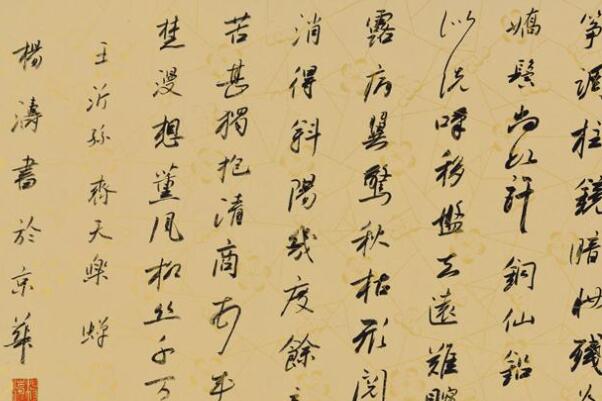 筝調柱鏡暗妝殘
嬌鬢尚如許銅仙鉛
似洗嘆移盤去遠難貯
露病翼驚秋枯形閱
消得斜陽幾度餘
苦甚獨抱清商頓成
楚漫想薰風柳絲千万
王沂孫齊天樂蟬
楊濤書於京華